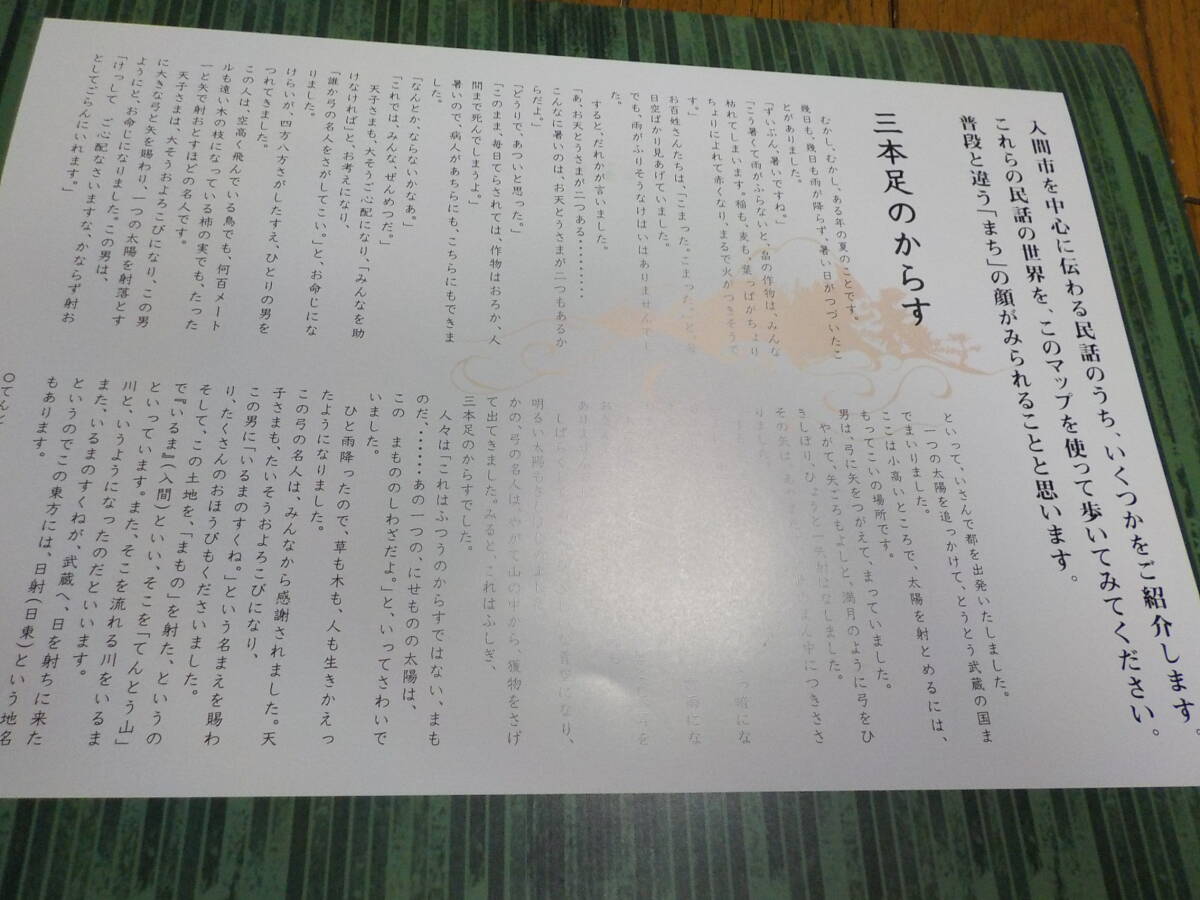 入間市を中心に伝わる民話のうち、いくつかをご紹介します。
これらの民話の世界を、このマップを使って歩いてみてください。
普段と違う「まち」の顔がみられることと思います。
三本足のからす
むかし、むかし、ある年の夏のことです。
幾日も、幾日も雨が降らず、暑い日がつづいたこ
とがありました。
「ずいぶん、暑いですね。」
「こう暑くて雨がふらないと、畠の作物は、みんな
枯れてしまいます。稲も、麦も、葉っぱがちょり
ちょりによれて赤くなり、まるで火がつきそうで
す。」
お百姓さんたちは、「こまった。こまった。」と、毎
日空ばかり見あげていました。
でも、雨がふりそうなけはいはありませんでし
た。
すると、だれかが言いました。
「あ、お天とうさまが二つある………
こんなに暑いのは、お天とうさまが二つもあるか
らだよ。」
「どうりで、あついと思った。」
「このまま、毎日てらされては、作物はおろか、人
間まで死んでしまうよ。」
暑いので、病人があちらにも、こちらにもできま
した。
「なんとか、ならないかなあ。」
「これでは、みんな、ぜんめつだ。」
天子さまも、大そうご心配になり、「みんなを助
けなければ」と、お考えになり、
「誰か弓の名人をさがしてこい。」と、お命じにな
りました。
けらいが、四方八方さがしたすえ、ひとりの男を
つれてきました。
この人は、空高く飛んでいる鳥でも、何百メート
ルも遠い木の枝になっている柿の実でも、たった
一と矢で射おとすほどの名人です。
天子さまは、大そうおよろこびになり、この男
に大きな弓と矢を賜わり、一つの太陽を射落とす
ようにと、お命じになりました。この男は、
「けっして ご心配なさいますな、かならず射お
としてごらんにいれます。」
といって、いさんで都を出発いたしました。
一つの太陽を追っかけて、とうとう武蔵の国ま
でまいりました。
ここは小高いところで、太陽を射とめるには、
もってこいの場所です。
男は、弓に矢をつがえて、まっていました。
やがて、矢ごろもよしと、満月のように弓をひ
きしぼり、ひょうと一矢射はなしました。
その矢は、
のまん中につきささ
りました。
暗にな
雨にな
弓を
しば
な青空になり、
明るい太陽も
かの、弓の名人は、やが 山の中から、獲物をさげ
て出てきました。みると、これはふしぎ、
三本足のからすでした。
人々は「これはふつうのからすではない、まも
のだ、……あの一つの、にせものの太陽は、
この まもののしわざだよ。」と、いってさわいで
いました。
ひと雨降ったので、草も木も、人も生きかえっ
たようになりました。
この弓の名人は、みんなから感謝されました。天
子さまも、たいそうおよろこびになり、
この男に「いるまのすくね。」という名まえを賜わ
り、たくさんのおほうびもくださいました。
そして、この土地を、「まもの」を射た、というの
で『いるま』(入間)といい、そこを「てんとう山」
といっています。また、そこを流れる川をいるま
川と、いうようになったのだといいます。
また、いるまのすくねが、武蔵へ、日を射ちに来た
というのでこの東方には、日射(日東)という地名
もあります。
○てんと